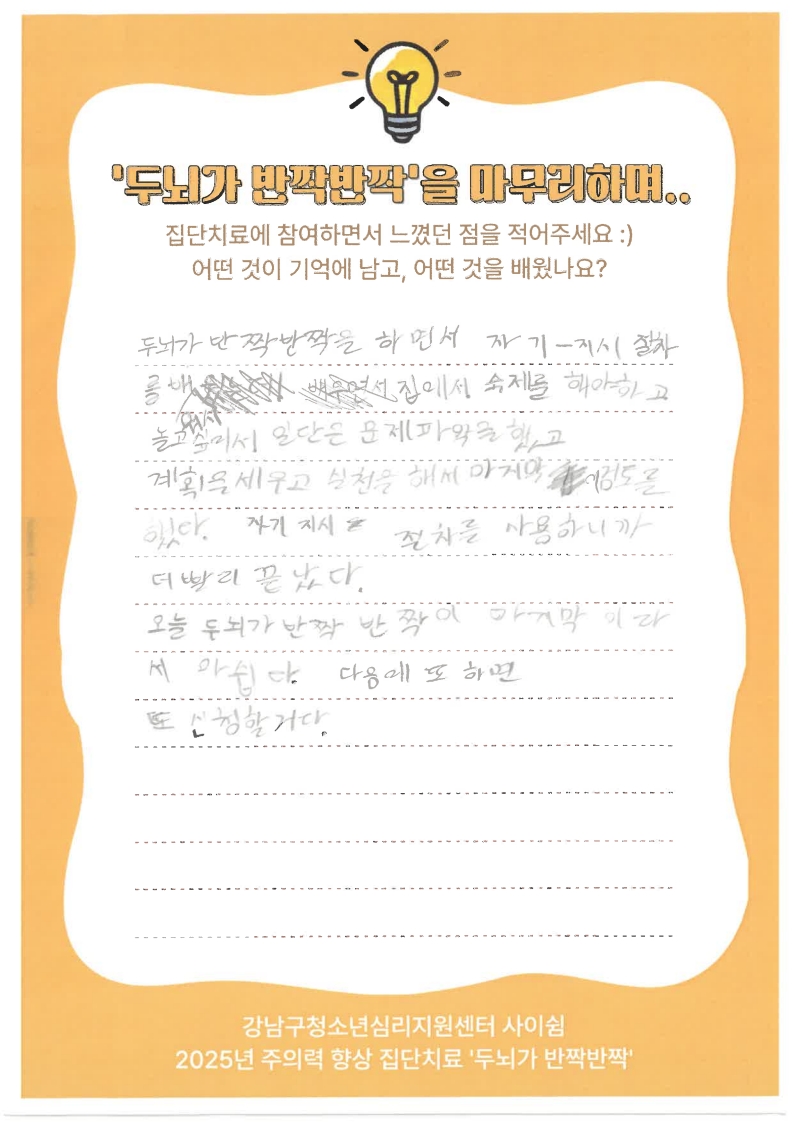 '두뇌가 반짝반짝'을 마무리하며..
집단치료에 참여하면서 느꼈던 점을 적어주세요 :)
어떤 것이 기억에 남고, 어떤 것을 배웠나요?
두뇌가 반짝반짝을 하면서 자기-지시 절차
를 배 집에서 숙제를 해야하고
워서
놀고싶어서 일단은 문제파악을 했고
계획을세우고 실천을 해서 마지막 검토를
했다. 자기 지시 절차를 사용하니까
더 빨리 끝났다.
오늘 두뇌가 반짝 반짝이 마지막이라
서 아쉽다. 다음에 또 하면
또 신청할거다.
강남구청소년심리지원센터 사이쉼
2025년 주의력 향상 집단치료 '두뇌가 반짝반짝'